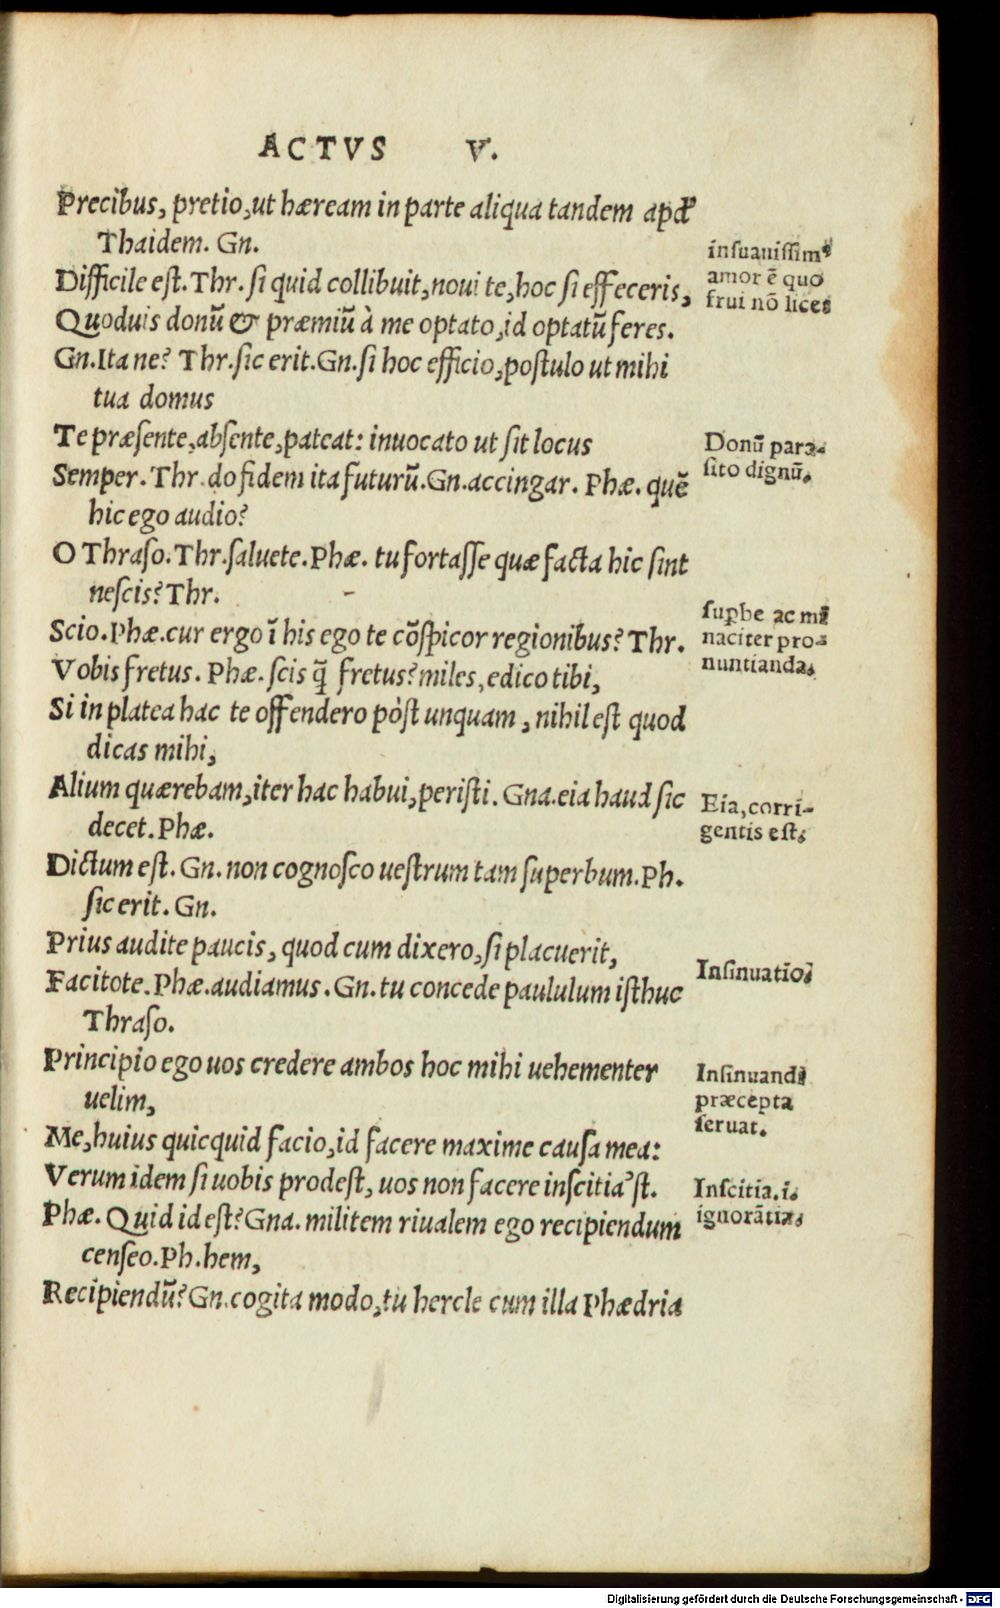 ACTVS V.
Precibus, pretio, ut hæream in parte aliqua tandem apd'
Thaidem. Gn.
Difficile est. Thr. si quid collibuit, noui te, hoc si effeceris,
Quoduis donũ & præmiũ à me optato, id optatũ feres.
Gn. Ita ne? Thr. sic erit. Gn. si hoc efficio, postulo ut mihi
tua domus
Te præsente, absente, pateat: inuocato ut sit locus
Semper. Thr. do fidem ita futurũ. Gn. accingar. Phæ. quẽ
hic ego audio?
O Thraso. Thr. saluete. Phæ. tu fortasse quæ facta hic sint
nescis? Thr.
Scio. Phæ. cur ergo ĩ his ego te cõspicor regionibus? Thr.
Vobis fretus. Phæ. scis q̃ fretus? miles, edico tibi,
Si in platea hac te offendero pòst unquam, nihil est quod
dicas mihi,
Alium quærebam, iter hac habui, peristi. Gna. eia haud sic
decet. Phæ.
Dictum est. Gn. non cognosco uestrum tam superbum. Ph.
sic erit. Gn.
Prius audite paucis, quod cum dixero, si placuerit,
Facitote. Phæ. audiamus. Gn. tu concede paululum isthuc
Thraso.
Principio ego uos credere ambos hoc mihi uehementer
uelim,
Me, huius quicquid facio, id facere maxime causa mea:
Verum idem si uobis prodest, uos non facere inscitia'st.
Phæ. Quid id est? Gna. militem riualem ego recipiendum
censeo. Ph. hem,
Recipiendũ? Gn. cogita modo, tu hercle cum illa Phædria
insuauissim⁹
amor ẽ quo
frui nõ licet
Donũ para-
sito dignũ.
supbe ac mi
naciter pro-
nuntianda.
Eia, corri-
gentis est.
Insinuatio.
Insinuandi
præcepta
seruat.
Inscitia. i.
ignorãtia.
Digitalisierung gefördert durch die Deutsche Forschungsgemeinschaft - DFG